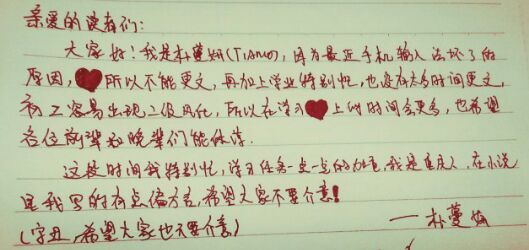 亲爱的读者们:
大家好!我是朴蔓妍(Tiamo),因为最近手机输入法坏了的
原因,所以不能更文,再加上学业特别忙,也没有太多时间更文,
初二容易出现二级风化,所以在学习上的时间会更多,也希望
各位前辈和晚辈们能体谅.
这段时间我特别忙,学习任务一点一点的加重,我是重庆人,在小说
里我写的有点偏方言,希望大家不要介意!
(字丑,希望大家也不要介意)
——朴蔓妍